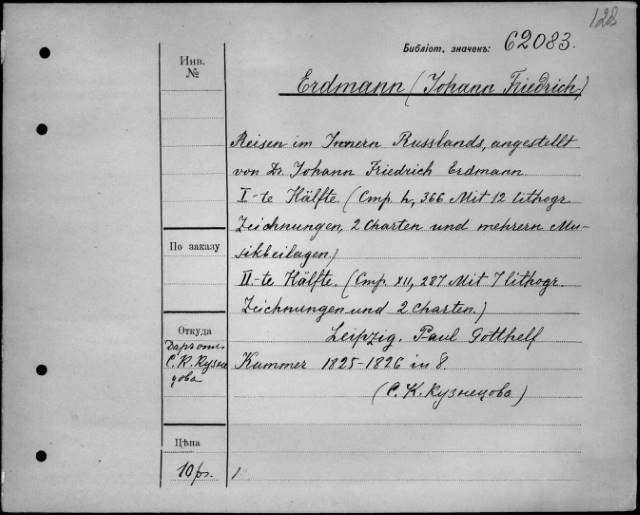 128
Библіот. значекъ: 62083.
Инв.
№
Erdmann (Johann Friedrich)
Reisen im Innern Russlands, angestellt
von Dr. Johann Friedrich Erdmann.
I-te Hälfte (Стр. L, 366 Mit 12 lithogr.
Zeichnungen, 2 Charten und mehrern Mu-
sikbeilagen.)
По заказу
II-te Hälfte. (Стр. XII, 287 Mit 7 lithogr.
Zeichnungen und 2 Charten.)
Leipzig. Paul Gotthelf
Kummer 1825-1826 in 8.
(С. К. Кузнецова)
Откуда
Даръ отъ
С. К. Кузне
цова
Цѣна
10 р. 1